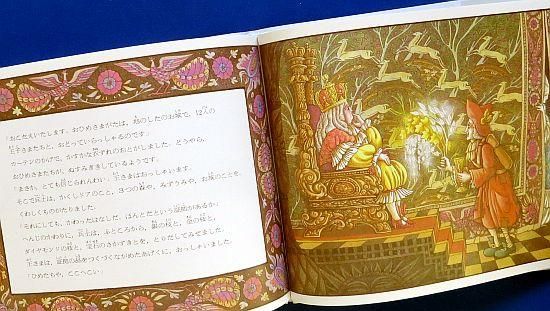 「おこたえいたします。おひめさまがたは、地のしたのお城で、12人の
王子さまたちと、おどっていらっしゃるのです」
カーテンのかげで、かすかな衣ずれのおとがしました。どうやら、
おひめさまたちが、ぬすみぎきしているようです。
「まさか。とても信じられんわい」王さまはおっしゃいます。
そこで兵士は、かくしドアのこと、3つの森や、みずうみや、お城のことを、
くわしくものがたりました。
「それにしても、かわったはなしだ。ほんとだという証拠があるか」
へんじのかわりに、兵士は、ふところから、銀の枝と、金の枝と、
ダイヤモンドの枝と、金のさかずきとを、とりだしてみせました。
王さまは、証拠の品をつくづくながめたあげくに、おっしゃいました。
「ひめたちや、ここへこい」